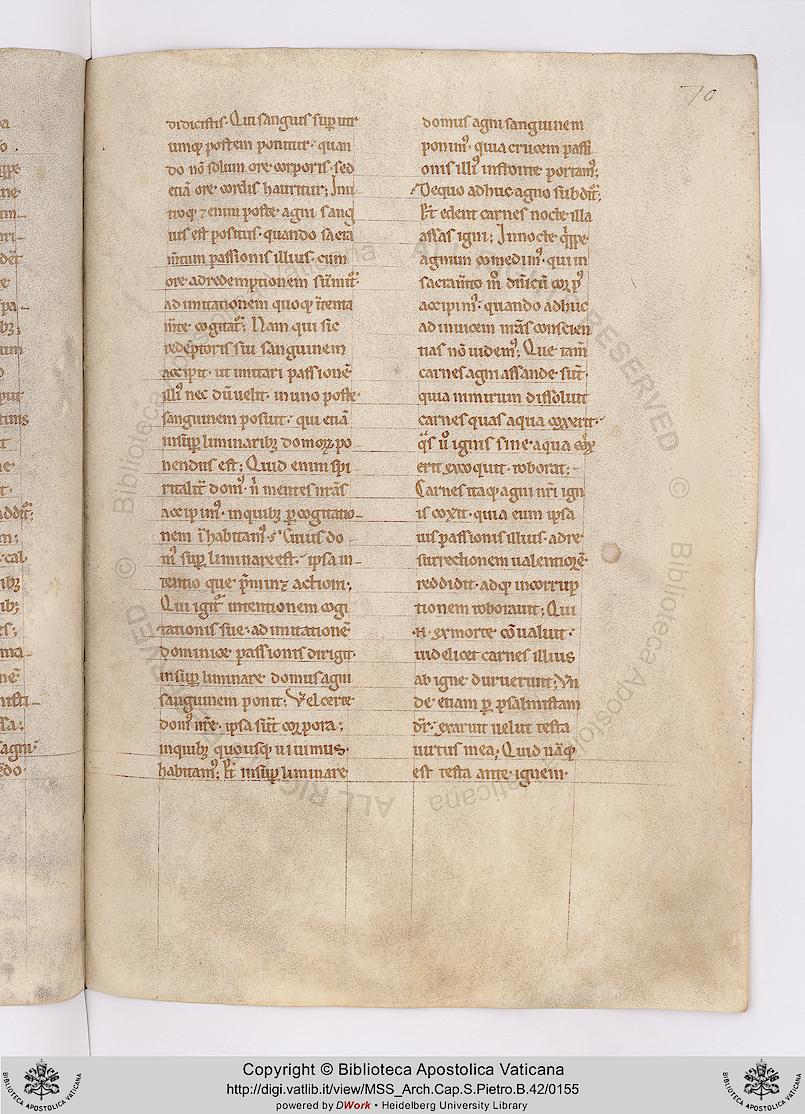 70
didicistis. Qui sanguis sup ut
umq; postem ponitur. quan
do nō solum ore corporis. sed
etiā ore cordis hauritur; In u
troq; & enim poste agni sang
uis est positus. quando sacra
m̄tum passionis illius. cum
ore ad redemptionem sumit᷑.
ad imitationem quoq; ītenta
m̄te cogitat᷑; Nam qui sic
redeptoris sui sanguinem
accipit. ut imitari passionē
illi᷒ nec dū uelit. in uno poste
sanguinem posuit. qui etiā
in sup liminarib; domorꝝ po
nendus est; Quid enim spi
ritalit᷑ dom᷒. n̄ mentes nr̄as
accipim᷒. in quib; p cogitatio-
nem īhabitam᷒; Cuius do-
m᷒ sup liminare est. ipsa in-
tentio que p̄minꝫ actioni;
Qui igit᷑ intentionem cogi
tationis sue. ad imitationē
dominice passionis dirigit.
in sup liminare domus agni
sanguinem ponit; Vel certe
dom᷒ nr̄e. ipsa sūt corpora;
in quib; quousq; uiuimus.
habitam᷒; Et in sup liminare
domus agni sanguinem
ponim᷒. quia crucem passi
onis illi᷒ in fronte portam᷒;
De quo adhuc agno subdit᷑;
Et edent carnes nocte illa
assas igni; In nocte q̄ppe
agnum comedim᷒. qui in
sacram̄to m̊ dn̄icū corp᷒
accipim᷒. quando adhuc
ad inuicem nr̄as conscien
tias nō uidem᷒; Que tam̄
carnes agni assande sūt.
quia nimirum dissoluit
carnes quas aqua coxerit.
q̄s ů ignis sine aqua cox
erit excoquit. roborat;
Carnes itaq; agni nr̄i ign
is coxit. quia eum ipsa
uis passionis illius. ad re
surrectionem ualentiorē
reddidit. adq; incorrup
tionem roborauit; Qui
.n. ex morte cōualuit.
uidelicet carnes illius
ab igne duruerunt; Vn
de etiam p psalmistam
dr̄. Exaruit uelut testa
uirtus mea; Quid nāq;
est testa ante ignem.
Copyright © Biblioteca Apostolica Vaticana
http://digi.vatlib.it/view/MSS_Arch.Cap.S.Pietro.B.42/0155
powered by DWork • Heidelberg University Library
BIBLIOTECA APOSTOLICA VATICANA
BIBLIOTECA APOSTOLICA VATICANA